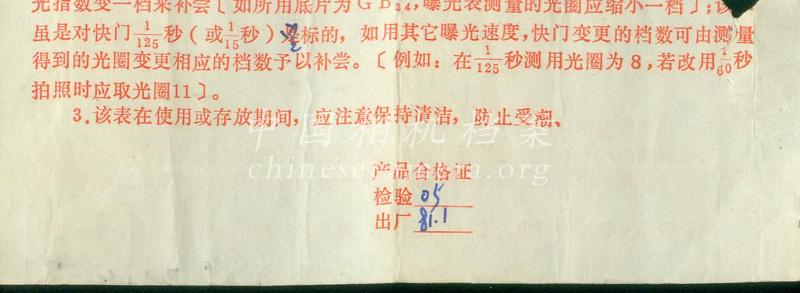 光指数变一档来补尝〔如所用底片为GB24，曝光表测量的光圈应缩小一档〕；该
虽是对快门1/125秒（或1/15秒）定标的，如用其它曝光速度，快门变更的档数可由测量
得到的光圈变更相应的档数予以补尝。〔例如：在1/125秒测用光圈为8，若改用1/60秒
拍照时应取光圈11〕。
3.该表在使用或存放期间，应注意保持清洁，防止受潮、
中国相机档案
chinesecamera.org
产品合格证
检验 05
出厂 81.1